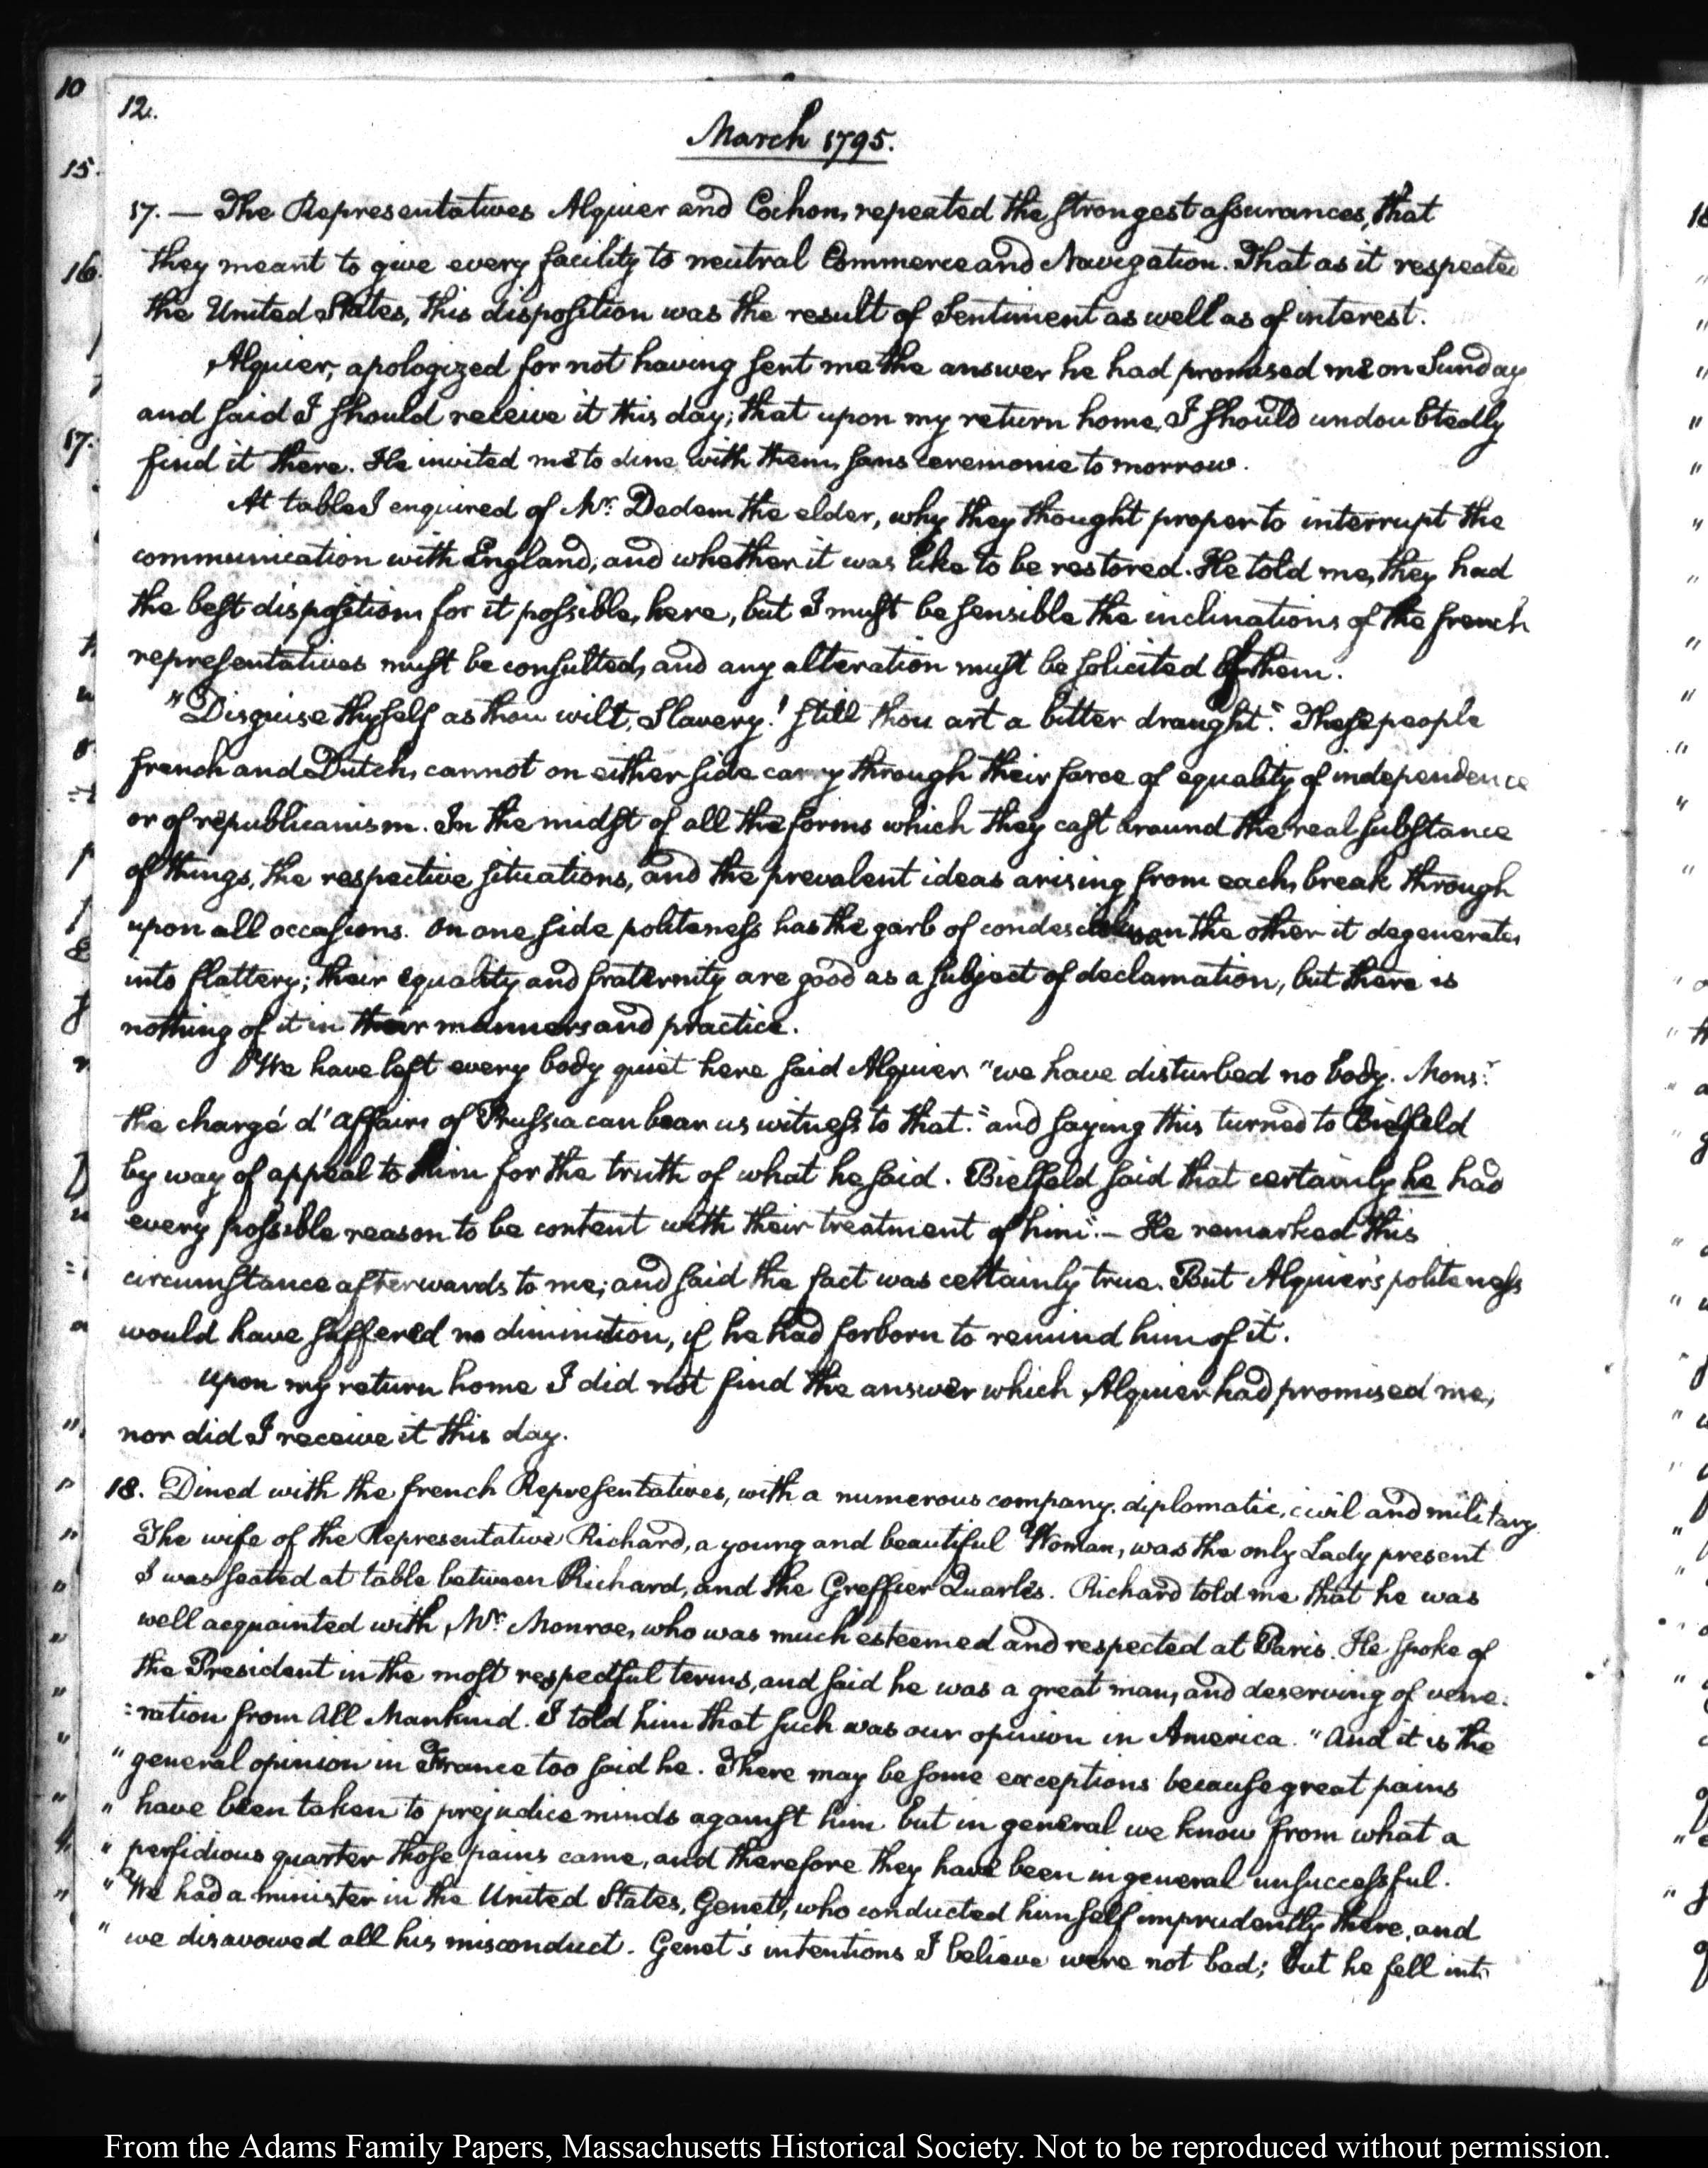 12.
March 1795.
17. — The Representatives Alquier and Cochon, repeated the strongest assurances, that
they meant to give every facility to neutral Commerce and Navigation. That as it respected
the United States, this disposition was the result of Sentiment as well as of interest.
Alquier, apologized for not having sent me the answer he had promised me on Sunday
and said I should receive it this day; that upon my return home, I should undoubtedly
find it there. He invited me to dine with them, sans ceremonie to morrow.
At table I enquired of Mr. Dedem the elder, why they thought proper to interrupt the
communication with England, and whether it was like to be restored. He told me, they had
the best disposition for it possible, here, but I must be sensible the inclinations of the french
representatives must be consulted, and any alteration must be solicited of them.
"Disguise thyself as thou wilt, Slavery! still thou art a bitter draught." These people
french and Dutch, cannot on either side carry through their farce of equality of independence
or of republicanism. In the midst of all the forms which they cast around the real substance
of things, the respective situations, and the prevalent ideas arising from each, break through
upon all occasions. On one side politeness has the garb of on the other it degenerates
into flattery; their equality and fraternity are good as a subject of declamation, but there is
nothing of it in their manners and practice.
"We have left every body quiet here said Alquier "we have disturbed no body. Monsr.
the chargé d'affairs of Prussia can bear us witness to that." and saying this turned to Bielfeld
by way of appeal to him for the truth of what he said. Bielfeld said that certainly he had
every possible reason to be content with their treatment of him". — He remarked this
circumstance afterwards to me; and said the fact was certainly true. But Alquier's politeness
would have suffered no diminution, if he had forborn to remind him of it.
Upon my return home I did not find the answer which Alquier had promised me,
nor did I receive it this day.
18. Dined with the french Representatives, with a numerous company, diplomatic, civil and military
The wife of the Representative Richard, a young and beautiful Woman, was the only Lady present
I was seated at table between Richard, and the Greffier Quarles. Richard told me that he was
well acquainted with Mr. Monroe, who was much esteemed and respected at Paris. He spoke of
the President in the most respectful terms, and said he was a great man, and deserving of vene=
=ration from all Mankind. I told him that such was our opinion in America. "And it is the
" general opinion in France too said he. There may be some exceptions because great pains
" have been taken to prejudice minds against him but in general we know from what a
" perfidious quarter those pains came, and therefore they have been in general unsuccessful.
" We had a minister in the United States, Genett, who conducted himself imprudently there, and
" we disavowed all his misconduct. Genet's intentions I believe were not bad; but he fell into
From the Adams Family Papers, Massachusetts Historical Society. Not to be reproduced without permission.